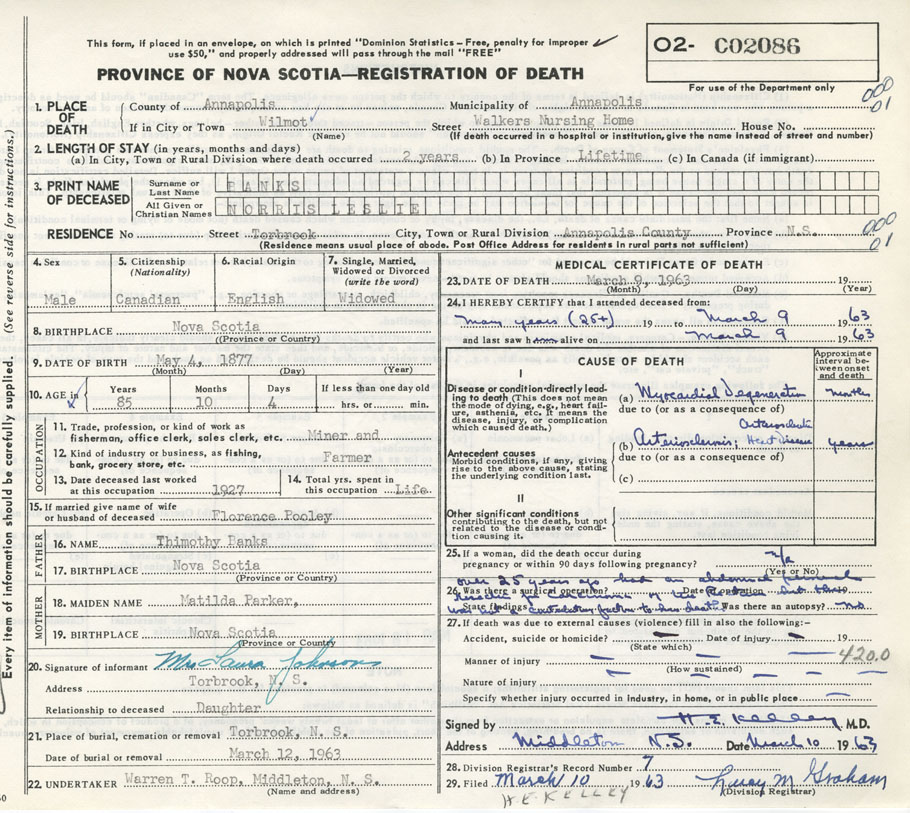 This form, if placed in an envelope, on which is printed "Dominion Statistics – Free, penalty for improper
use $50," and properly addressed will pass through the mail "FREE"
O2- C02086
For use of the Department only
PROVINCE OF NOVA SCOTIA—REGISTRATION OF DEATH
000
01
1. PLACE OF DEATH
County of Annapolis Municipality of Annapolis
If in City or Town Wilmot Street Walkers Nursing Home House No.
(Name) (If death occurred in a hospital or institution, give the name instead of street and number)
2. LENGTH OF STAY (in years, months and days)
(a) In City, Town or Rural Division where death occurred 2 years (b) In Province Lifetime (c) In Canada (if immigrant)
3. PRINT NAME OF DECEASED
Surname or Last Name BANKS
All Given or Christian Names NORRIS LESLIE
000
01
RESIDENCE No Street Torbrook City, Town or Rural Division Annapolis County Province N.S.
(Residence means usual place of abode. Post Office Address for residents in rural parts not sufficient)
4. Sex
Male
5. Citizenship
(Nationality)
Canadian
6. Racial Origin
English
7. Single, Married,
Widowed or Divorced
(write the word)
Widowed
8. BIRTHPLACE Nova Scotia
(Province or Country)
9. DATE OF BIRTH May 4, 1877
(Month) (Day) (Year)
10. AGE in Years Months Days If less than one day old
85 10 4 hrs. or min.
OCCUPATION
11. Trade, profession, or kind of work as
fisherman, office clerk, sales clerk, etc. Miner and
12. Kind of industry or business, as fishing,
bank, grocery store, etc. Farmer
13. Date deceased last worked
at this occupation 1927
14. Total yrs. spent in
this occupation Life
15. If married give name of wife
or husband of deceased Florence Pooley
FATHER
16. NAME Thimothy Banks
17. BIRTHPLACE Nova Scotia
(Province or Country)
MOTHER
18. MAIDEN NAME Matilda Parker,
19. BIRTHPLACE Nova Scotia
(Province or Country)
20. Signature of informant Mrs Laura Johnson
Address Torbrook, N. S.
Relationship to deceased Daughter
21. Place of burial, cremation or removal Torbrook, N. S.
Date of burial or removal March 12, 1963
22. UNDERTAKER Warren T. Roop, Middleton, N. S.
(Name and address)
MEDICAL CERTIFICATE OF DEATH
23. DATE OF DEATH March 9, 1963 19
(Month) (Day) (Year)
24. I HEREBY CERTIFY that I attended deceased from:
many years (25+) 19 to March 9 1963
and last saw h alive on March 9 1963
CAUSE OF DEATH
Approximate
interval between
onset
and death
I
Disease or condition directly leading
to death (This does not mean
the mode of dying, e.g., heart failure,
asthenia, etc. It means the
disease, injury, or complication
which caused death.)
(a) Myocardial Degeneration months
due to (or as a consequence of)
Antecedent causes
Morbid conditions, if any, giving
rise to the above cause, stating
the underlying condition last.
Arteriosclerotic
(b) Arteriosclerosis; Heart Disease years
due to (or as a consequence of)
(c)
II
Other significant conditions
contributing to the death, but not
related to the disease or condition
causing it.
25. If a woman, did the death occur during
pregnancy or within 90 days following pregnancy? n/a
(Yes or No)
over 25 years ago had an abdominal perineal
26. Was there a surgical operation? Date of operation
resection for carcinoma of the Rectum but this
State findings Was there an autopsy? no
was not a contributory factor to his death
27. If death was due to external causes (violence) fill in also the following:–
Accident, suicide or homicide? Date of injury 19
(State which)
420.0
Manner of injury
(How sustained)
Nature of injury
Specify whether injury occurred in industry, in home, or in public place
Signed by H. E. Kelley M.D.
Address Middleton N.S. Date March 10 1963
28. Division Registrar's Record Number 7
29. Filed March 10 1963 Graham
(Division Registrar)
H.E. KELLEY
Every item of information should be carefully supplied. (See reverse side for instructions.)